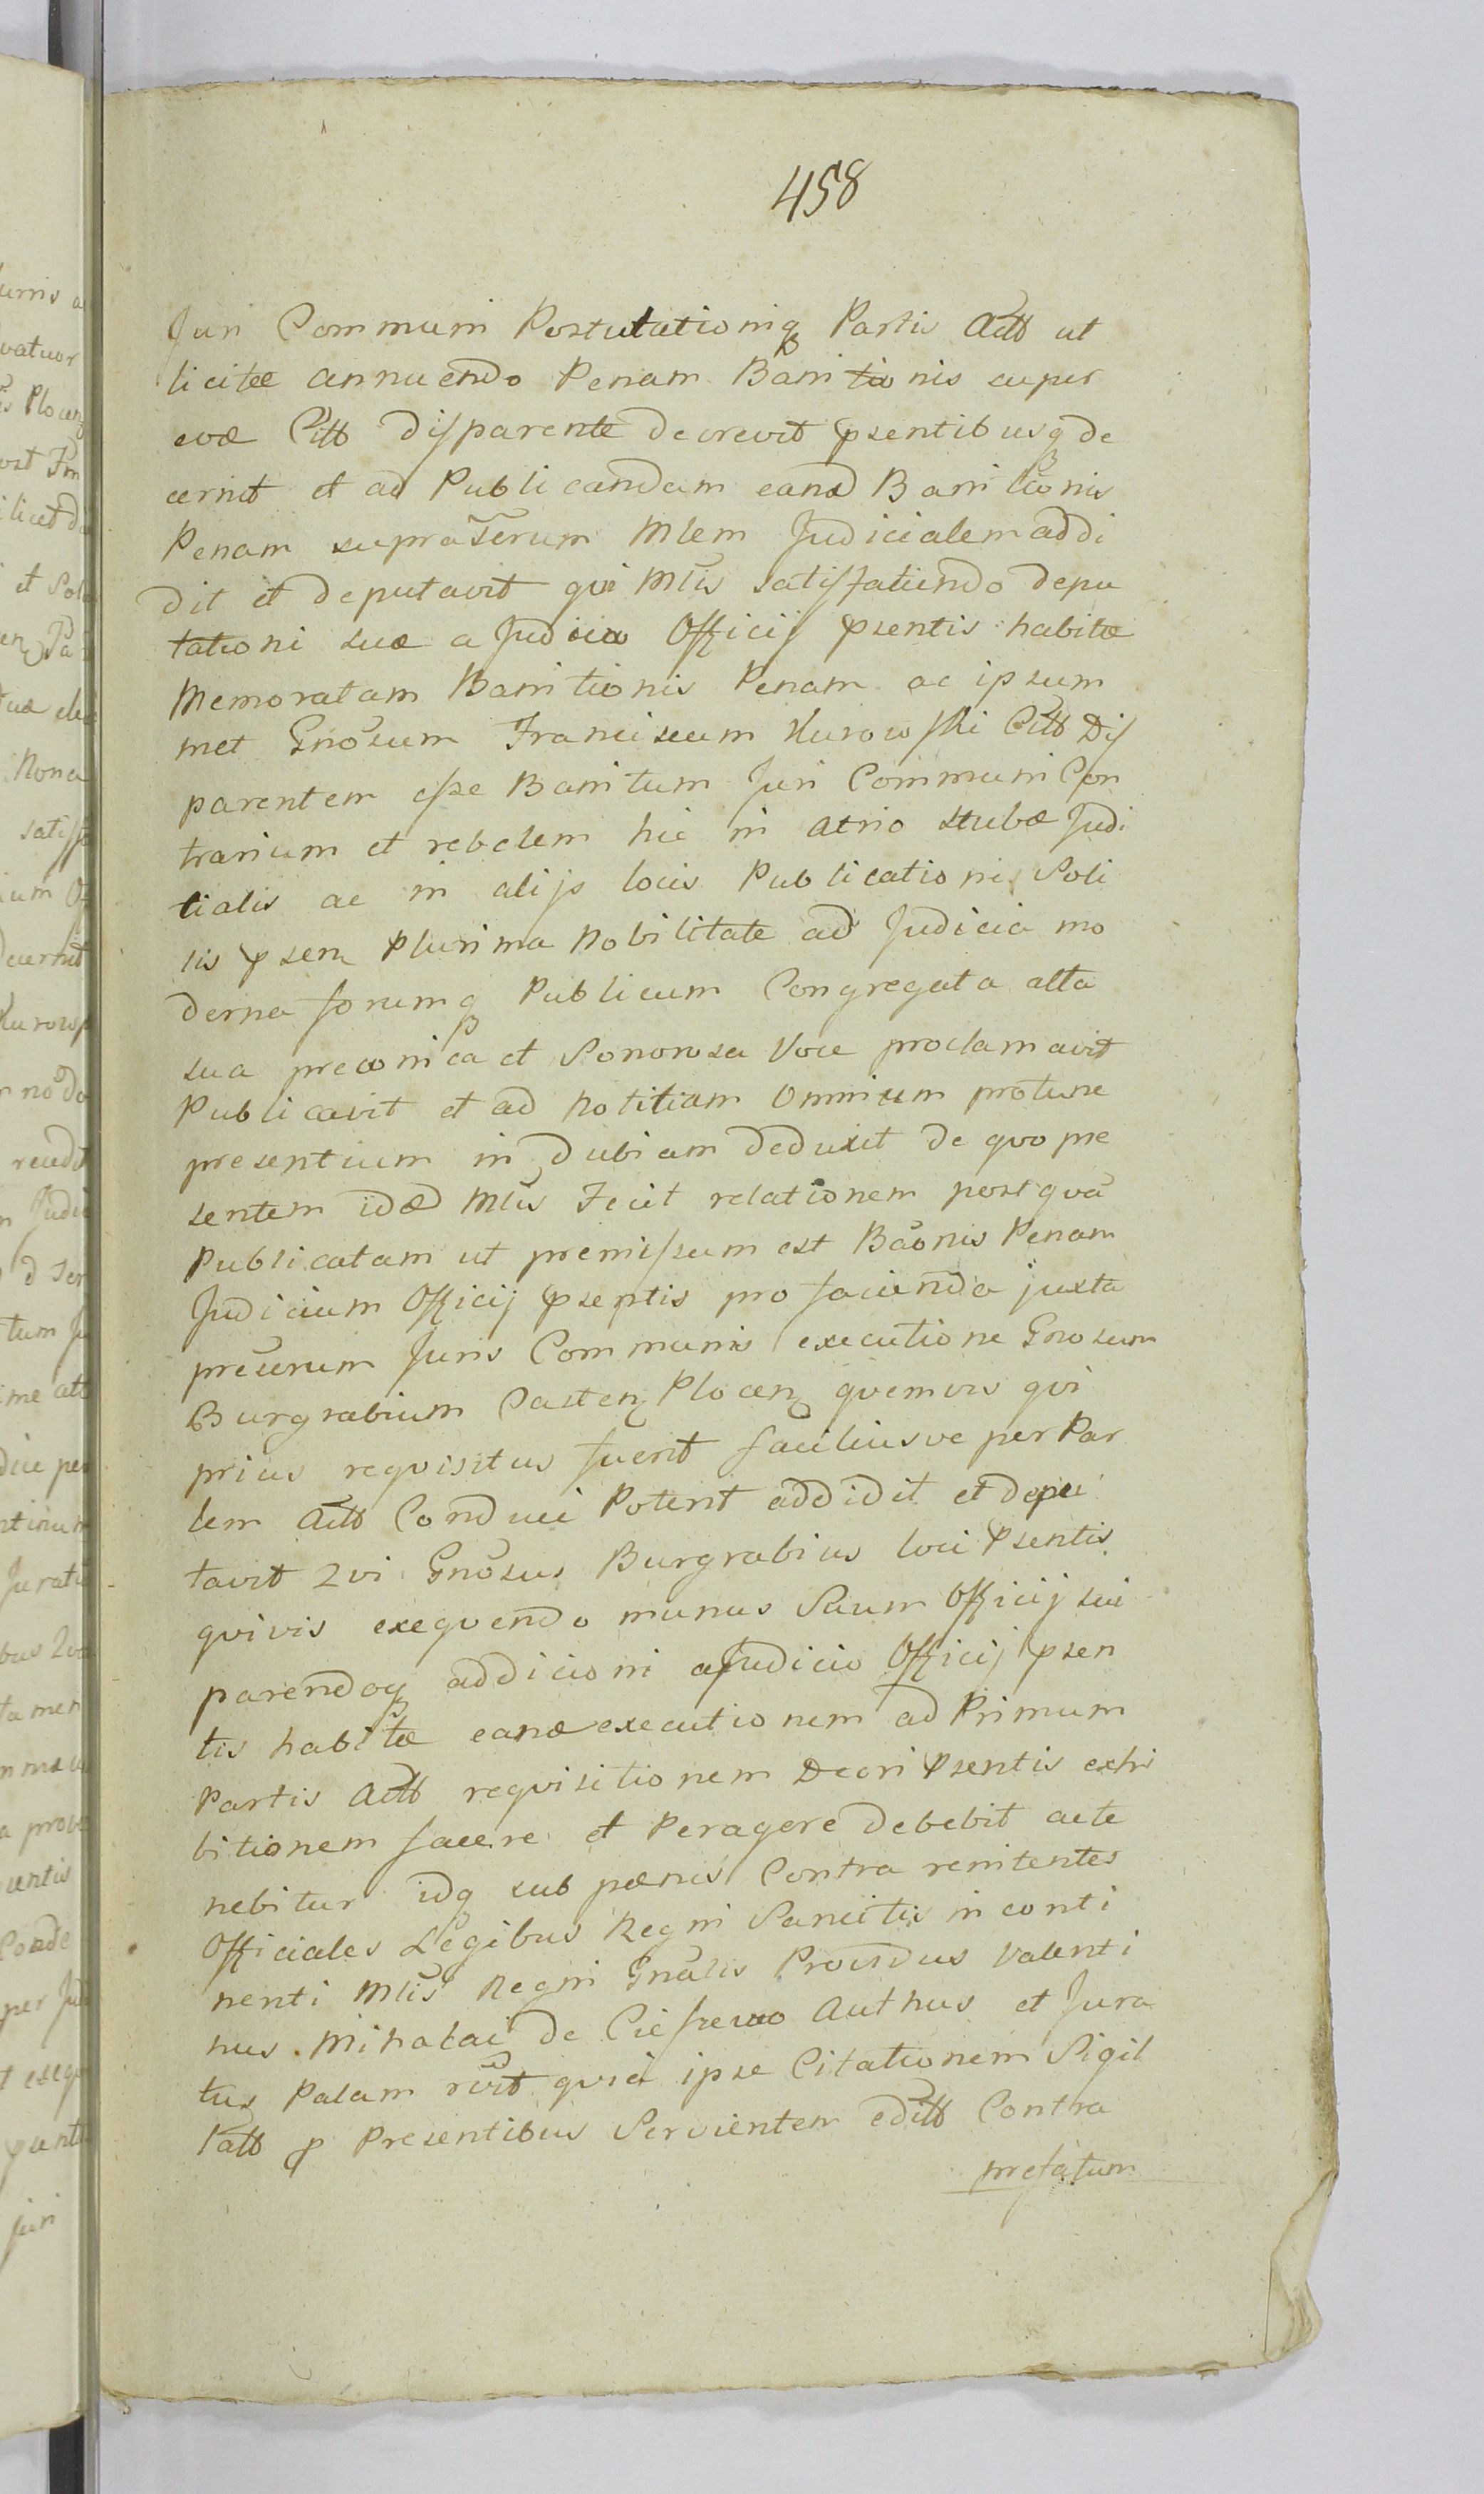 458
Juri Communi Postulationiq Partis Actt ut
licitæ annuendo Penam Banitionis super
evæ Citt disparente decrevit psentibusq de
cernit et ad Publicandam eand Banitionis
Penam suprascrum Mlem Judicialem addi
dit et deputavit qui Mlis satisfaciendo depu
tationi suæ a Judicio Officij psentis habitæ
Memoratam Banitionis Penam ac ipsum
met Gnosum Franciscum Kurowski Citt Dis
parentem esse Banitum Juri Communi Con
trarium et rebelem hic in atrio stubæ Judi
tialis ac in alijs locis Publicationi Soli
tis psen plurima Nobilitate ad Judicia mo
derna forumq Publicum Congregata alta
sua preconica et Sonorosa Voce proclamavit
Publicavit et ad Notitiam Omnium protunc
presentium in dubiam deduxit de quo pre
sentem idæ Mlis Fecit relationem post quá
Publicatam ut premissum est Baonis Penam
Judicium Officij psentis pro facienda juxta
prescrum Juris Communis executione Gnosum
Burgrabium Casten Plocen quemvis qui
prius requisitus fuerit faciliusve per Par
tem Actt Conduci Poterit addidit et depu
tavit Qvi Gnosus Burgrabius loci psentis
quivis exequendo munus Suum Officij sui
parendoq addicioni a Judicio Officij psen
tis habitæ eanæ executionem ad Primum
Partis Actt requisitionem Decri psentis exhi
bitionem facere et Peragere debebit acte
nebitur idq sub pænis Contra renitentes
Officiales Legibus Regni Sancitis in conti
nenti Mlis Regni Gnalis Providus Valenti
nus Mihalai de Ciessewo Authus et Jura
tus Palam rvit quia ipse Citationem Sigil
latt p Presentibus Servientem editt Contra
prefatum